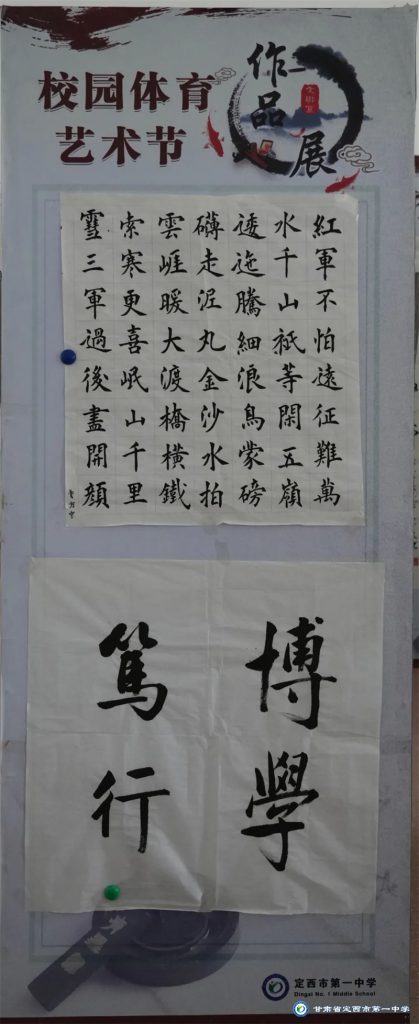 校园体育
艺术节
作品
展
紅軍不怕遠征難萬
水千山祇等閑五嶺
逶迤騰細浪烏蒙磅
礴走泥丸金沙水拍
雲崕暖大渡橋橫鐵
索寒更喜岷山千里
䨮三軍過後盡開顏
博學
篤行
定西市第一中学
Dingxi No. 1 Middle School
甘肃省定西市第一中学